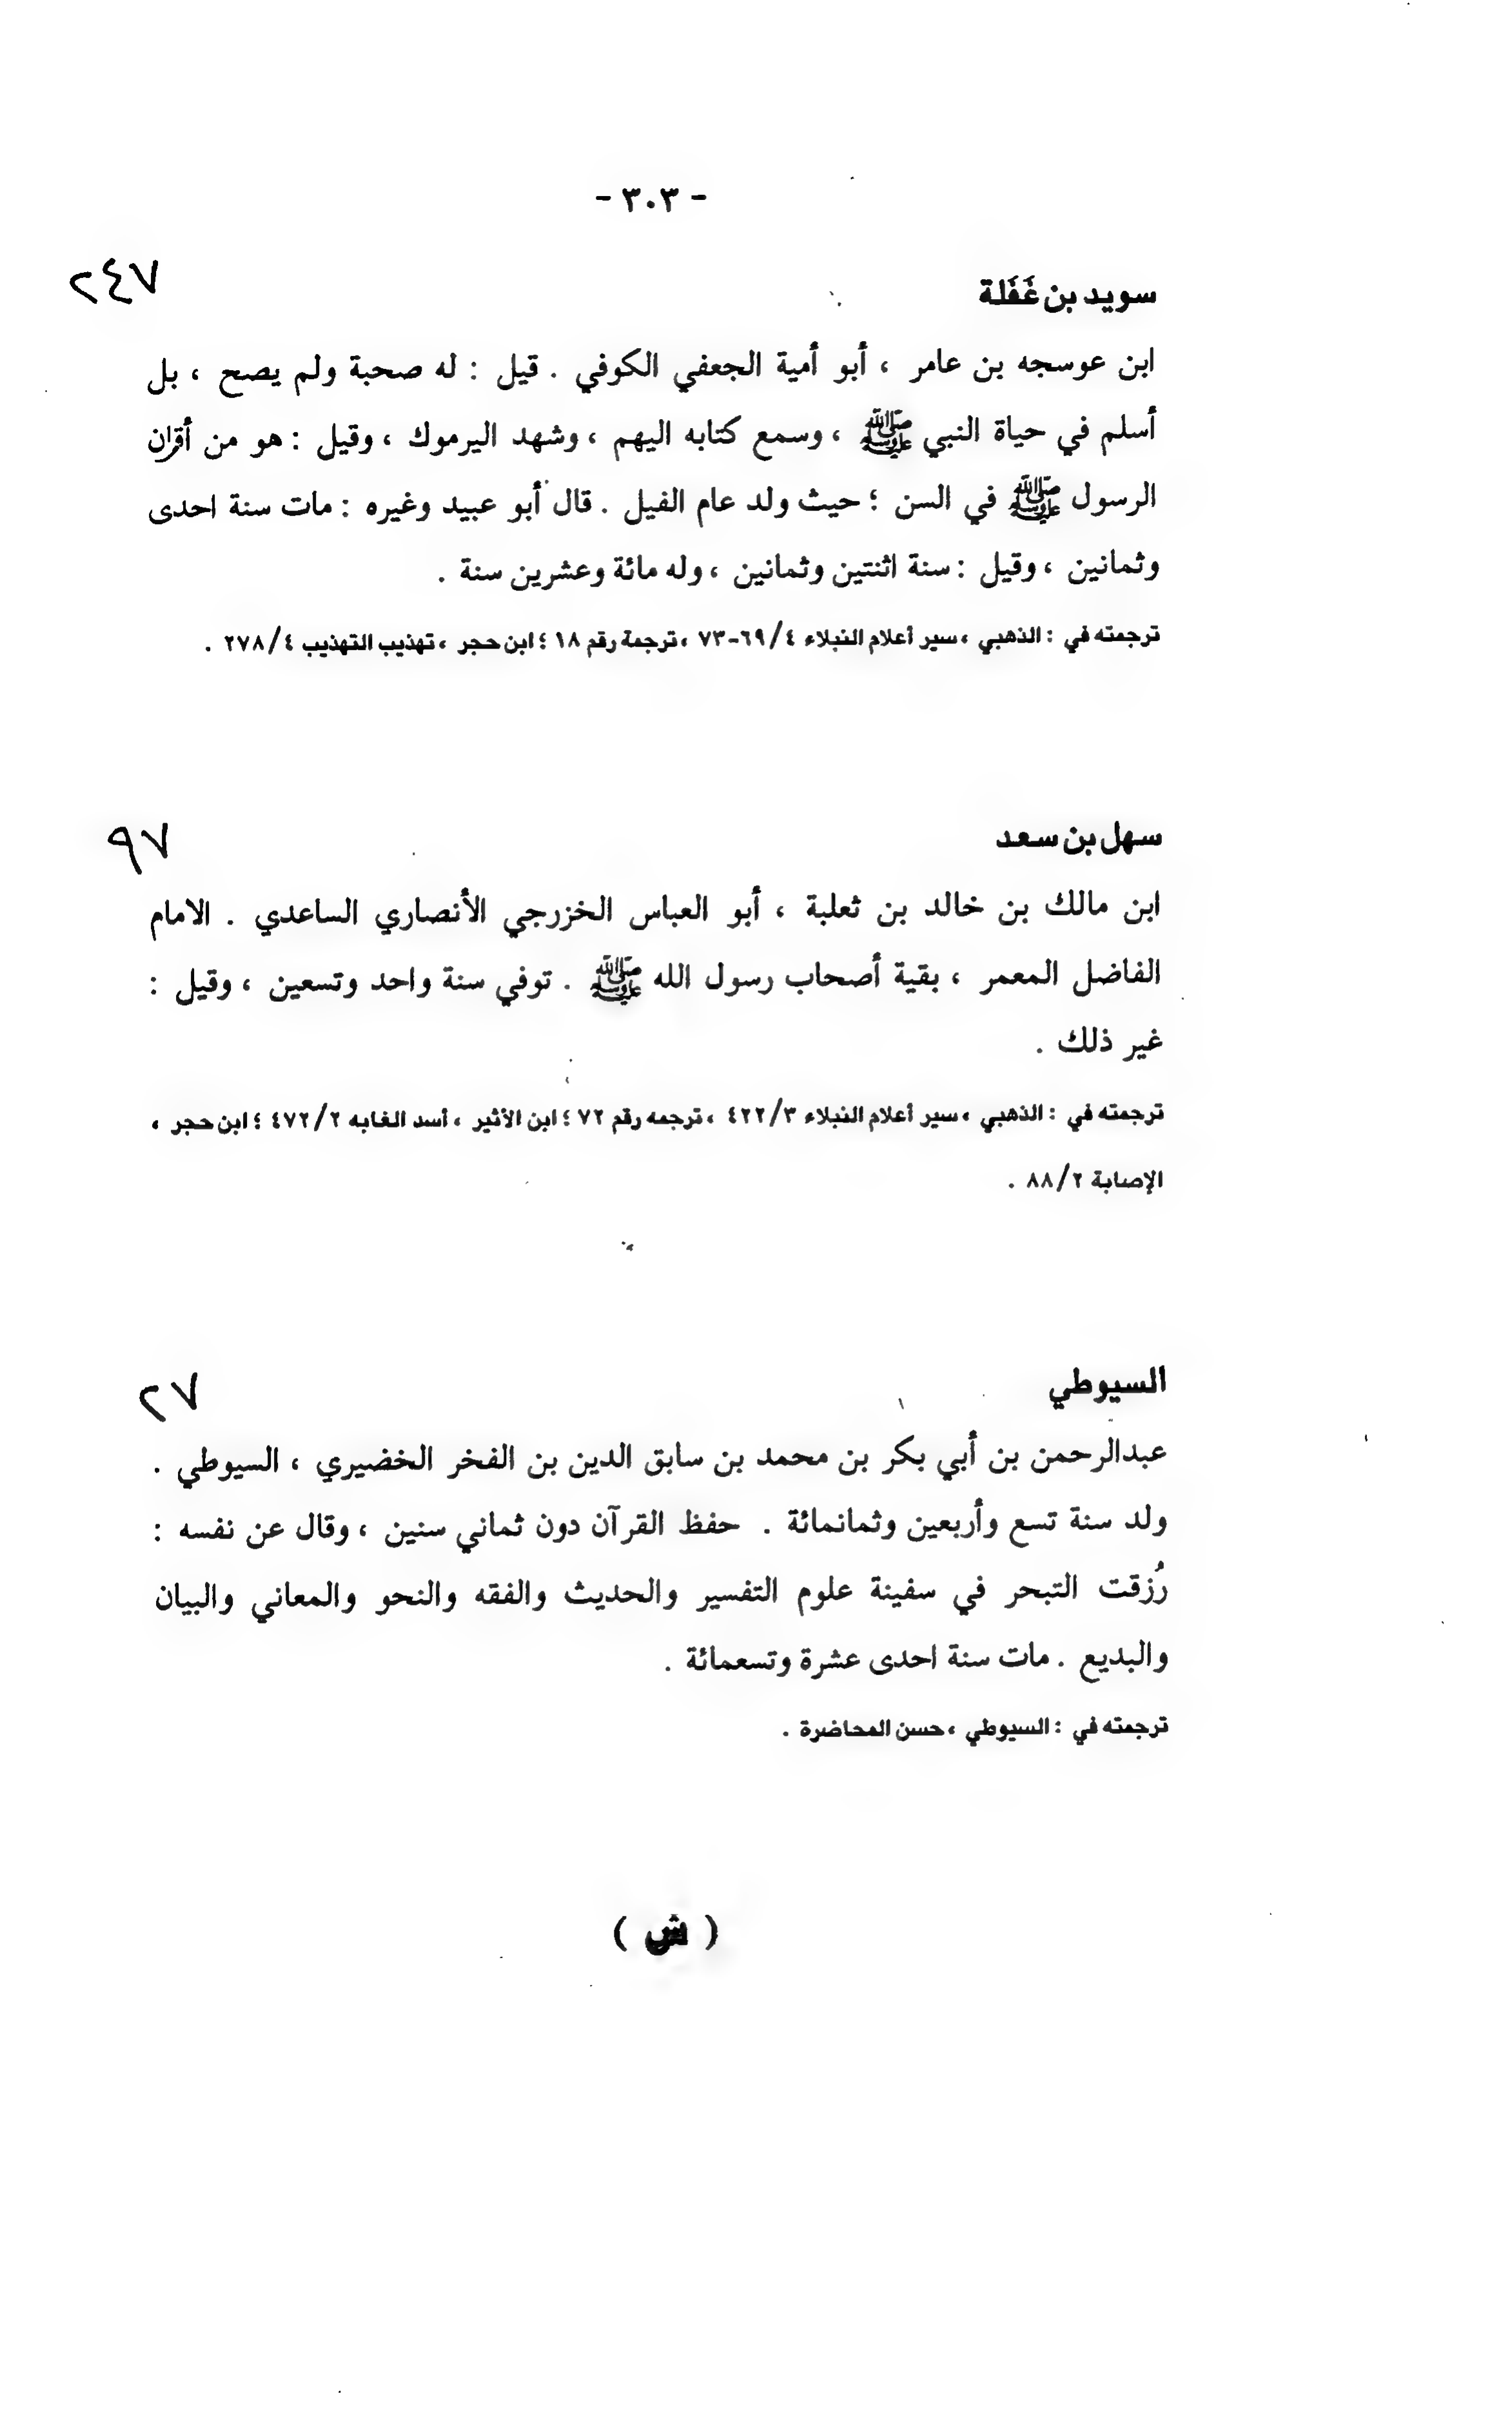 - ٣٠٣ -
سويد بن غَفَلة ٢٤٧
ابن عوسجه بن عامر ، أبو أمية الجعفي الكوفي . قيل : له صحبة ولم يصح ، بل
أسلم في حياة النبي ﷺ ، وسمع كتابه اليهم ، وشهد اليرموك ، وقيل : هو من أقران
الرسول ﷺ في السن ؛ حيث ولد عام الفيل . قال أبو عبيد وغيره : مات سنة احدى
وثمانين ، وقيل : سنة اثنتين وثمانين ، وله مائة وعشرين سنة .
ترجمته في : الذهبي ، سير أعلام النبلاء ٤/٦٩-٧٣ ، ترجمة رقم ١٨ ؛ ابن حجر ، تهذيب التهذيب ٤/٢٧٨ .
سهل بن سعد ٩٧
ابن مالك بن خالد بن ثعلبة ، أبو العباس الخزرجي الأنصاري الساعدي . الامام
الفاضل المعمر ، بقية أصحاب رسول الله ﷺ . توفي سنة واحد وتسعين ، وقيل :
غير ذلك .
ترجمته في : الذهبي ، سير أعلام النبلاء ٣/٤٢٢ ، ترجمه رقم ٧٢ ؛ ابن الأثير ، أسد الغابه ٢/٤٧٢ ؛ ابن حجر ،
الإصابة ٢/٨٨ .
السيوطي ٢٧
عبدالرحمن بن أبي بكر بن محمد بن سابق الدين بن الفخر الخضيري ، السيوطي .
ولد سنة تسع وأربعين وثمانمائة . حفظ القرآن دون ثماني سنين ، وقال عن نفسه :
رُزقت التبحر في سفينة علوم التفسير والحديث والفقه والنحو والمعاني والبيان
والبديع . مات سنة احدى عشرة وتسعمائة .
ترجمته في : السيوطي ، حسن المحاضرة .
( ش )